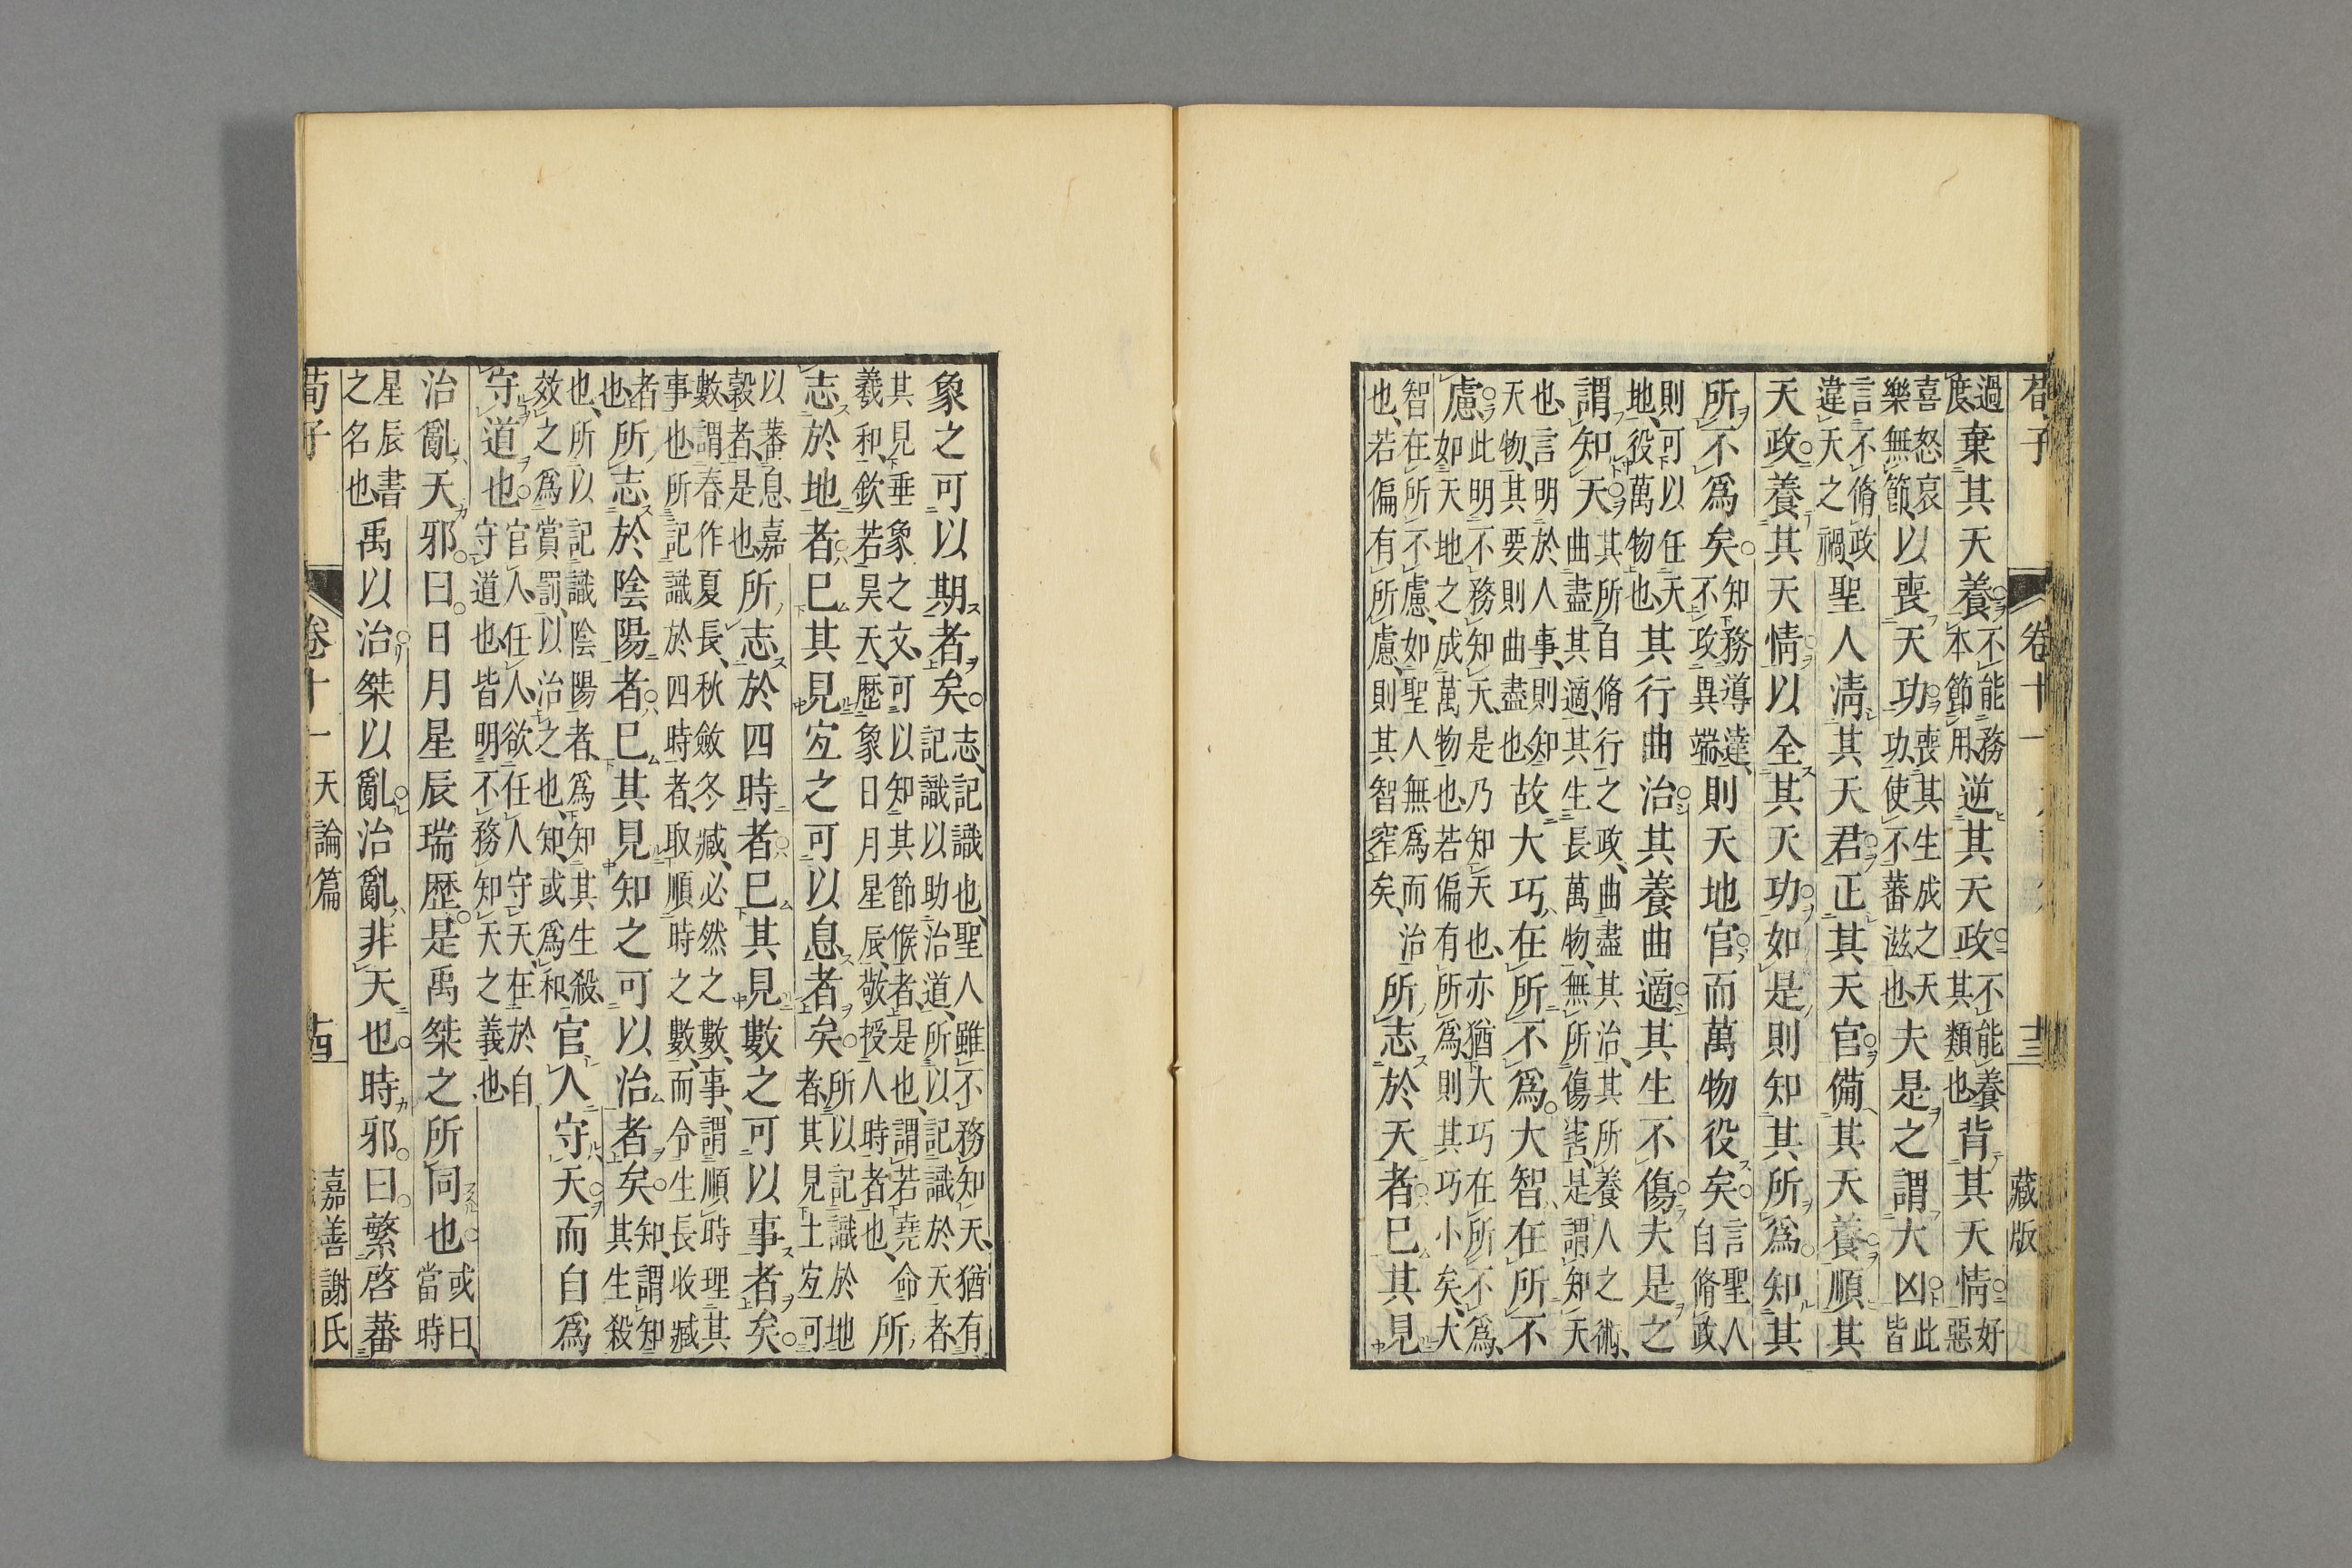 荀子 卷十一 十三 藏版
過度棄其天養不能務本節用逆其天政不能養其類也背其天情好惡
喜怒哀樂無節以喪天功喪其生成之天功使不蕃滋也夫是之謂大凶此皆
言不脩政違天之禍聖人淸其天君正其天官備其天養順其
天政養其天情以全其天功如是則知其所爲知其
所不爲矣知務導達不攻異端則天地官而萬物役矣言聖人自脩政
則可以任天地役萬物也其行曲治其養曲適其生不傷夫是之
謂知天其所自脩行之政曲盡其治其所養人之術曲盡其適其生長萬物無所傷害是謂知天
也言明於人事則知天物其要則曲盡也故大巧在所不爲大智在所不
慮此明不務知天是乃知天也亦猶大巧在所不爲如天地之成萬物也若偏有所爲則其巧小矣大
智在所不慮如聖人無爲而治也若偏有所慮則其智窄矣所志於天者已其見
象之可以期者矣志記識也聖人雖不務知天猶有記識以助治道所以記識於天者
其見垂象之文可以知其節候者是也謂若堯命羲和欽若昊天歷象日月星辰敬授人時者也所
志於地者已其見宐之可以息者矣所以記識於地者其見土宐可
以蕃息嘉穀者是也所志於四時者已其見數之可以事者矣
數謂春作夏長秋斂冬臧必然之數事謂順時理其事也所記識於四時者取順時之數而令生長收臧
者也所志於陰陽者已其見知之可以治者矣知謂知其生殺
也所以記識陰陽者爲知其生殺效之爲賞罰以治之也知或爲和官人守天而自爲
守道也官人任人欲任人守天在於自守道也皆明不務知天之義也
治亂天邪曰日月星辰瑞歷是禹桀之所同也或曰當時
星辰書之名也禹以治桀以亂治亂非天也時邪曰繁啓蕃
荀子 卷十一 天論篇 十四 嘉善謝氏